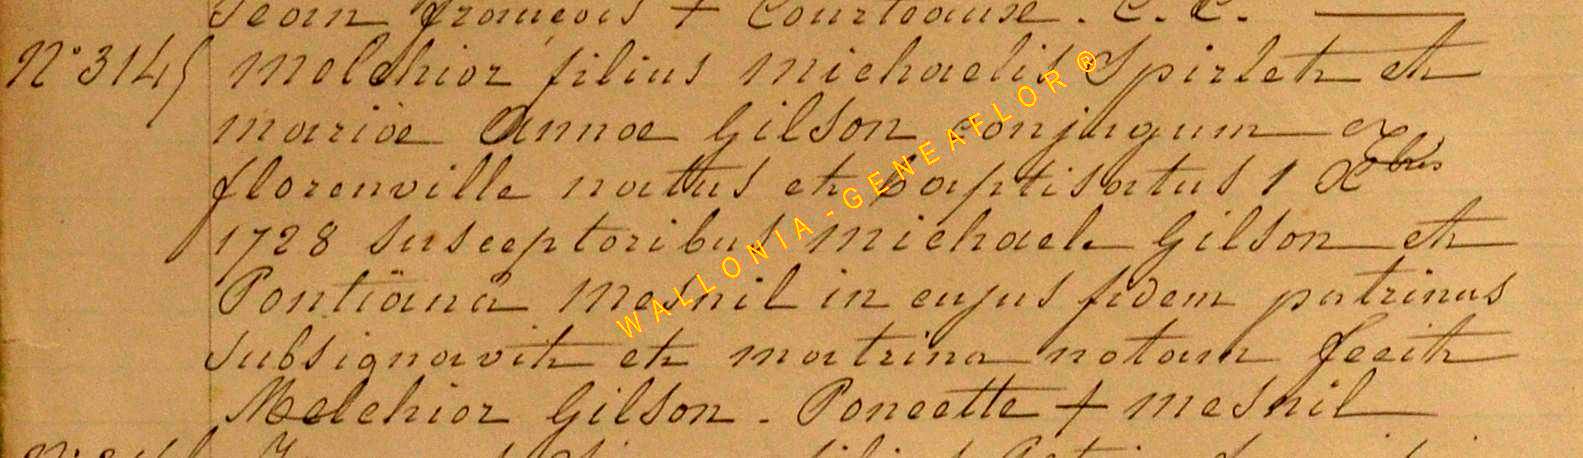 Jean françois + Courteause. C. C.
N° 3145 Melchior filius michaelis Spirlet et
mariæ Annæ Gilson conjugum ex
florenville nattus et baptisatus 1 Xbris
1728 susceptoribus michaele Gilson et
Pontiana Mesnil in cujus fidem patrinus
subsignavit et matrina notam fecit
Melchior Gilson - Poncette + mesnil
WALLONIA-GENEAFLOR®